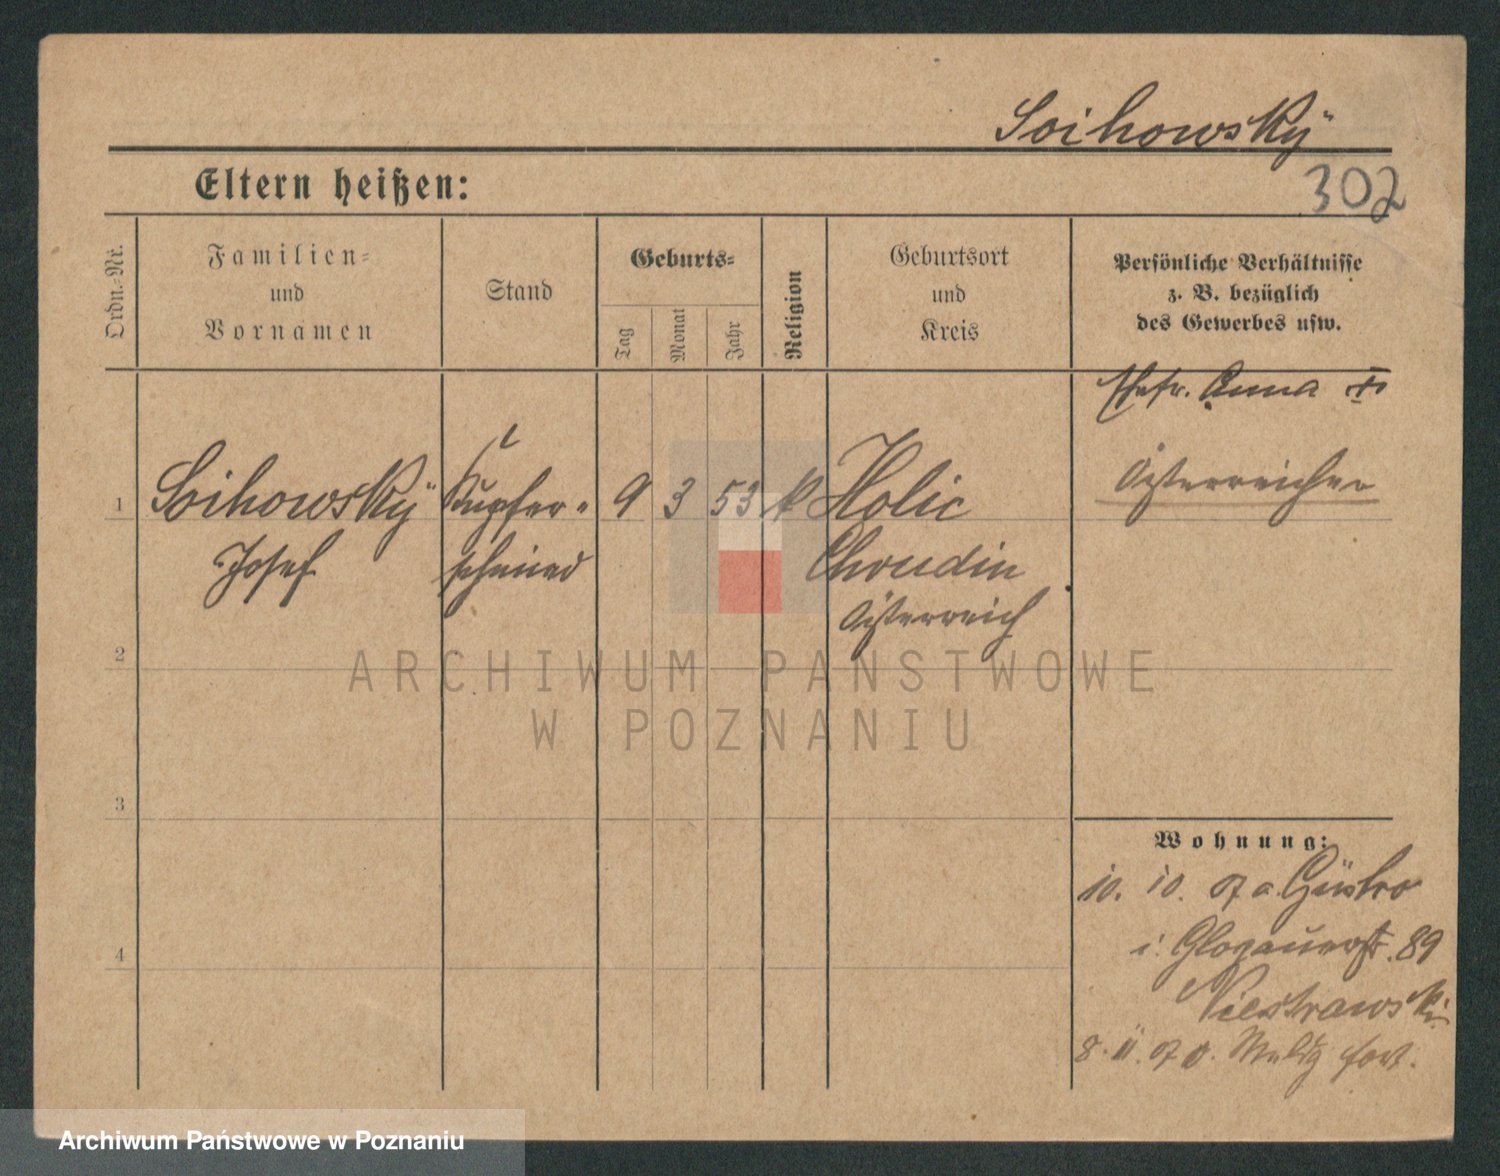 Soihowský
302
Eltern heißen:
Ordn.-Nr.
Familien-
und
Vornamen
Stand
Geburts-
Tag
Monat
Jahr
Religion
Geburtsort
und
Kreis
Persönliche Verhältnisse
z. B. bezüglich
des Gewerbes usw.
Ehefr. Anna
1
Soihowský
Josef
Kupfer-
schmied
9
3
53
k
Holic
Chrudin
Österreich
Österreicher
2
3
4
Wohnung:
10. 10. 07 a Güstro
i. Glogauerstr. 89
Niestrawski
8. 11. 07 fort.
ARCHIWUM PAŃSTWOWE
W POZNANIU
Archiwum Państwowe w Poznaniu